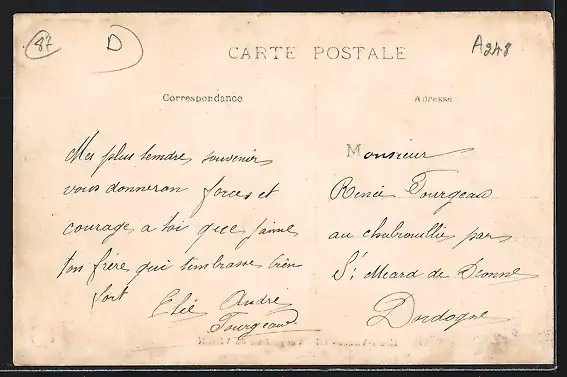 87
D
A248
CARTE POSTALE
Correspondance
Adresse
Mes plus tendre souvenir
vous donneron forces et
courage a toi que j'aime
ton frère qui tembrasse bien
fort
Elie André
Fourgeaud
Monsieur
René Fourgeaud
au chabrouillie par
St Meard de Dronne
Dordogne